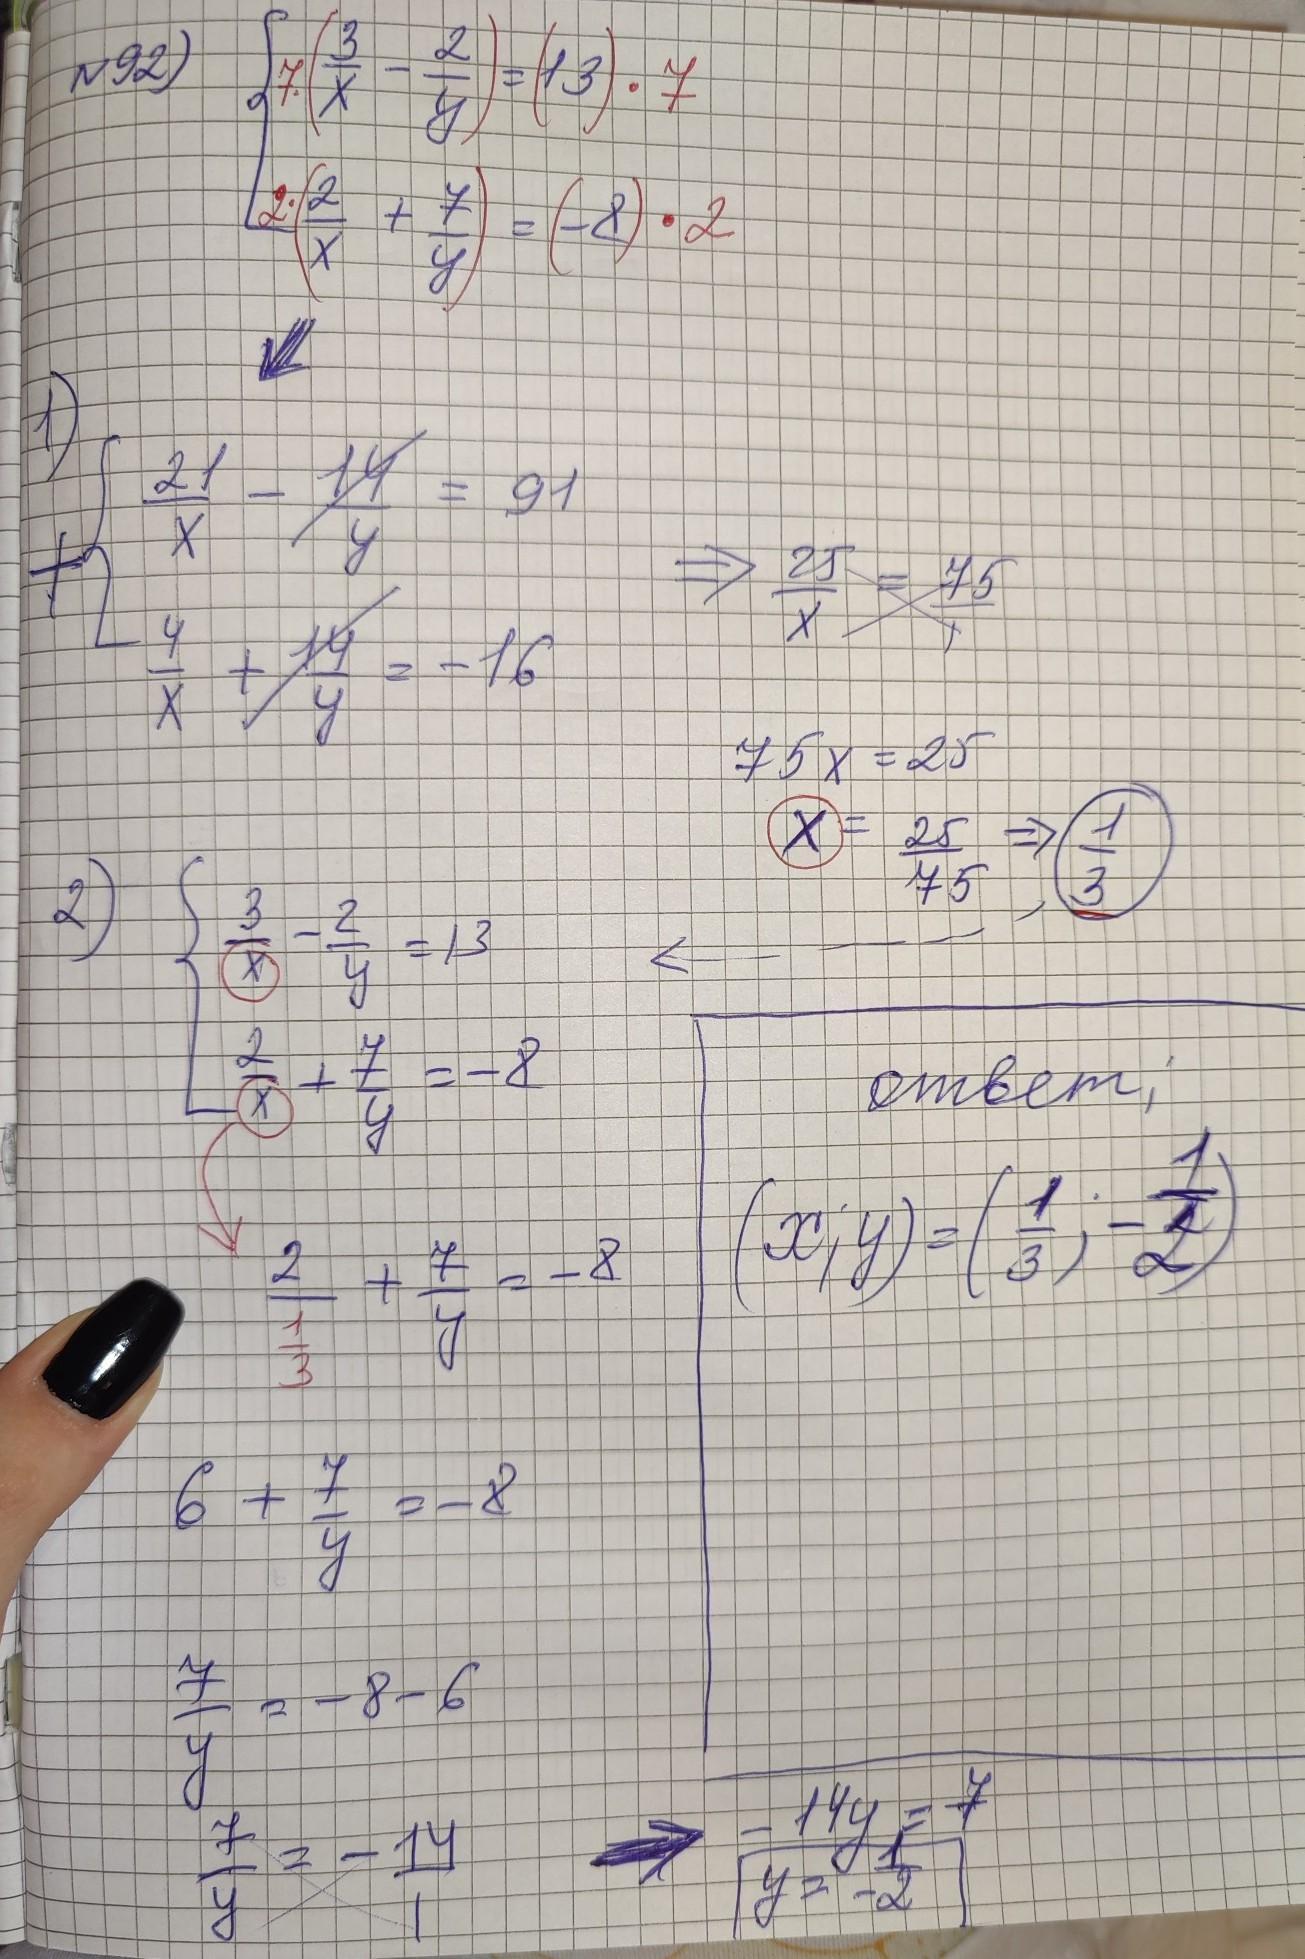 N92) { 7·(3/x - 2/y) = (13)·7
2·(2/x + 7/y) = (-8)·2
1) + { 21/x - 14/y = 91
4/x + 14/y = -16
⇒ 25/x = 75/1
75x = 25
x = 25/75 ⇒ 1/3
2) { 3/x - 2/y = 13
2/x + 7/y = -8
2/(1/3) + 7/y = -8
6 + 7/y = -8
7/y = -8-6
7/y = -14/1
→ -14y = 7
y = 1/-2
ответ;
(x; y) = (1/3; -1/2)